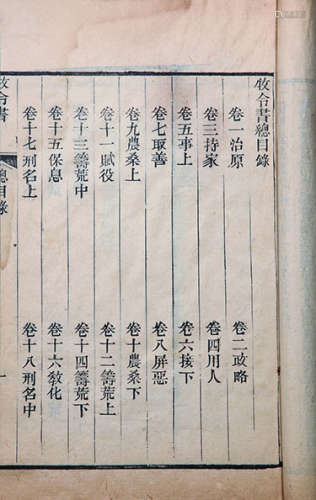 牧令書總目錄
卷一治原 卷二政略
卷三持家 卷四用人
卷五事上 卷六接下
卷七取善 卷八屏惡
卷九農桑上 卷十農桑下
卷十一賦役 卷十二籌荒上
卷十三籌荒中 卷十四籌荒下
卷十五保息 卷十六教化
卷十七刑名上 卷十八刑名中
牧令書 總目錄 一